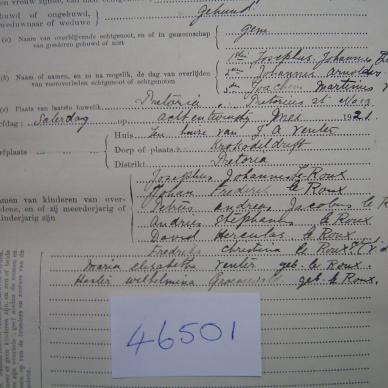 huwd of ongehuwd, Gehuwd
weduwnaar of weduwe
(a) Naam van overblijvende echtgenoot, en of in gemeenschap van goederen gehuwd of niet
(b) Naam of namen, en zo na mogelik, de dag van overlijden van vooroverleden echtgenoot of echtgenoten
Josephus Johannes
Johannes Arnoldus
Joachim Martinus
(c) Plaats van laatste huwelik Pretoria, Pretorius st
Zaterdag 1921
Huis Ten huize van J. A. Venter
Dorp of plaats Krokodildrift
Distrikt Pretoria
namen van kinderen van over-
dene, en of zij meerderjarig of
minderjarig zijn
Josephus Johannes le Roux
Johan Frederik le Roux
Petrus Andreas Jacobus le R
Andries Stephanus le Roux
David Hercules le Roux
Fredrika Christina le Roux
Maria Elizabetha Venter geb. le Roux.
Hester Wilhelmina Groenewald geb. le Roux.
46501